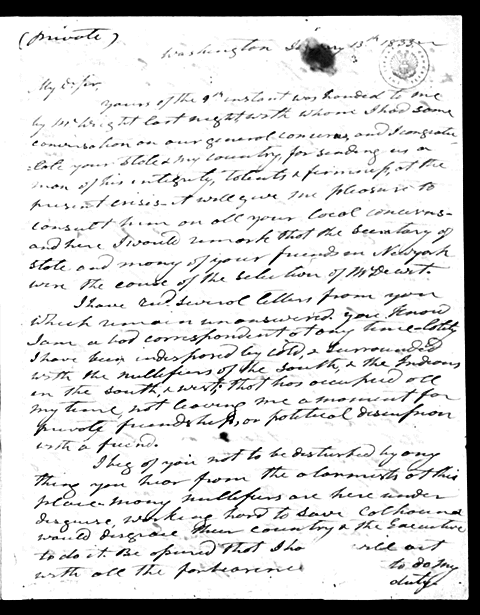 (Private)
Washington January 13th 1833
My D Sir,
yours of the 9th instant was handed to me
by Mr Wright last night with whom I had some
conversation on our general concerns, and I congratu-
late your State & my country, for sending us a
man of his integrity, talents & firmness, at the
present crisis—it will give me pleasure to
consult him on all your local concerns—
and here I would remark that the Secretary of
State and many of your friends in Newyork
were the cause of the selection of Mr Dewitt.
I have recd several letters from you
which remain unanswered. you know
I am a bad correspondent at any time. lately
I have been indisposed by cold, & surrounded
with the nullifiers of the South, & the Indians
in the South, & west; that has occupied all
my time, not leaving me a moment for
private friendship, or political discussion
with a friend.
I beg of you not to be disturbed by any
thing you hear from the alarmists at this
place. many nullifiers are here under
disguise, working hard to save Calhoun &
would disgrace their country & the Executive
to do it. Be assured that I have will act
with all the forbearance
to do my
duty